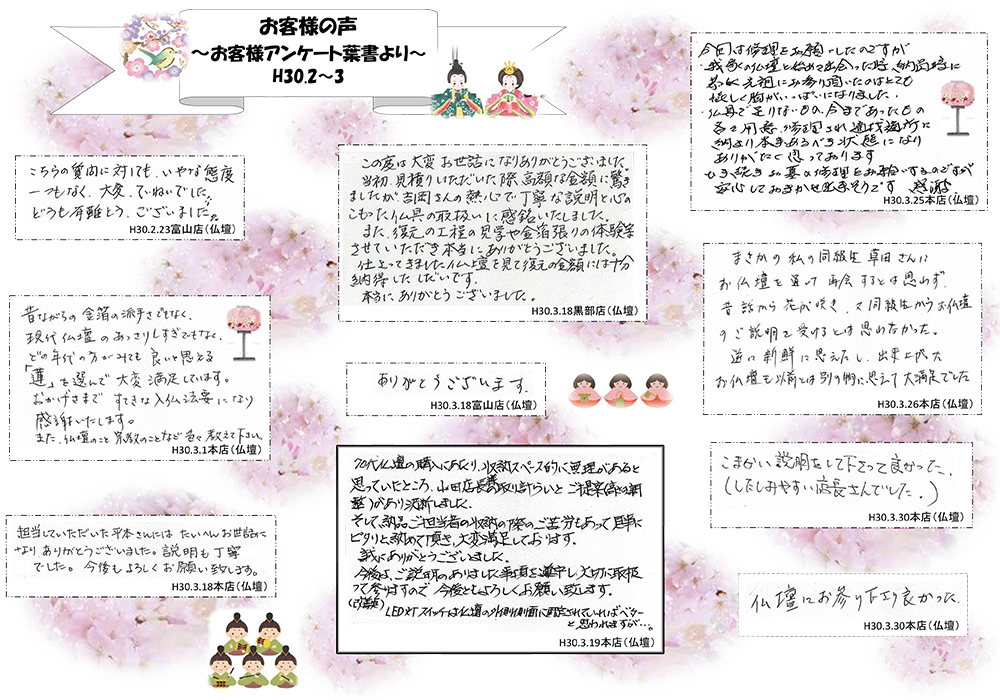 お客様の声
～お客様アンケート葉書より～
H30.2～3
こちらの質問に対しても、いやな態度
一つもなく、大変、ていねいでした。
どうも有難とう、ございました。
H30.2.23富山店（仏壇）
昔ながらの金箔の派手さでもなく、
現代仏壇のあっさりしすぎでもなく、
どの年代の方がみても良いと思える
「蓮」を選んで大変満足しています。
おかげさまで すてきな入仏法要になり
感謝いたします。
また、仏壇のこと宗教のことなど色々教えて下さい。
H30.3.1本店（仏壇）
担当していただいた平本さんには たいへんお世話に
なり ありがとうございました。説明も丁寧
でした。今後もよろしくお願い致します。
H30.3.18本店（仏壇）
この度は大変お世話になりありがとうございました。
当初、見積りいただいた際、高額な金額に驚き
ましたが、吉岡さんの熱心で丁寧な説明と心の
こもった仏具の取扱いに感銘いたしました。
また、復元の工程の見学や金箔張りの体験等
させていただき本当にありがとうございました。
仕上ってきました仏壇を見て復元の金額には十分
納得したしだいです。
本当に、ありがとうございました。
H30.3.18黒部店（仏壇）
ありがとうございます。
H30.3.18富山店（仏壇）
70代仏壇の購入にあたり、収納スペース的に無理があると
思っていたところ、山田店長の取り計らいとご提案
があり決断しました。
そして、納品ご担当者の収納の際のご苦労もあって見事に
ピタリと納めて頂き、大変満足しております。
誠にありがとうございました。
今後は、ご説明のありました事項を遵守し、大切に取扱
って参りますので今後ともよろしくお願い致します。
LED灯スイッチは仏壇の外側側面に固定されていればベター
と思われますが…。
H30.3.19本店（仏壇）
今回は修理をお願いしたのですが
我家の仏壇と始めて出会った時、納品時に
嬉しく胸がいっぱいになりました。
仏具で足りないもの、今まであったもの
各々用意、修理され適材適所に
納まり本来あるべき状態になり
ありがたく思っております
ひき続きお墓の修理をお願いするのですが
安心しておまかせ出来そうです
H30.3.25本店（仏壇）
まさかの私の同級生 草田さんに
お仏壇を通って再会するとは思わず、
昔話から花が咲き、又同級生からお仏壇
のご説明を受けるとは思わなかった。
逆に新鮮に思えたし、出来上がった
お仏壇も以前とは別の物に思えて大満足でした
H30.3.26本店（仏壇）
こまかい説明をして下さって良かった…、
（したしみやすい店長さんでした。）
H30.3.30本店（仏壇）
仏壇にお参り下さり良かった。
H30.3.30本店（仏壇）